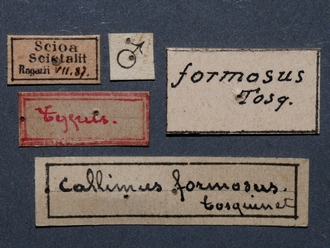 Scioa
Sciotalit
Ragazzi VII.87.
♂
formosus
Tosq.
Typus.
Callimus formosus.
Tosquinet